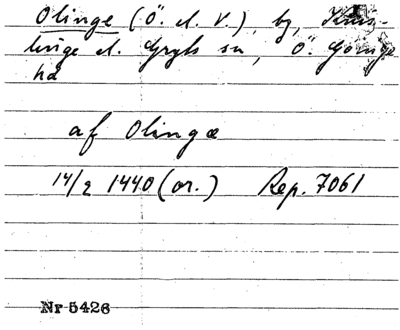 Olinge (Ö. el. V.), by, Knis-
linge el. Gryts sn, Ö. Göinge
hd
af Olingæ
14/2 1440 (or.) Rep. 7061
Nr 5426